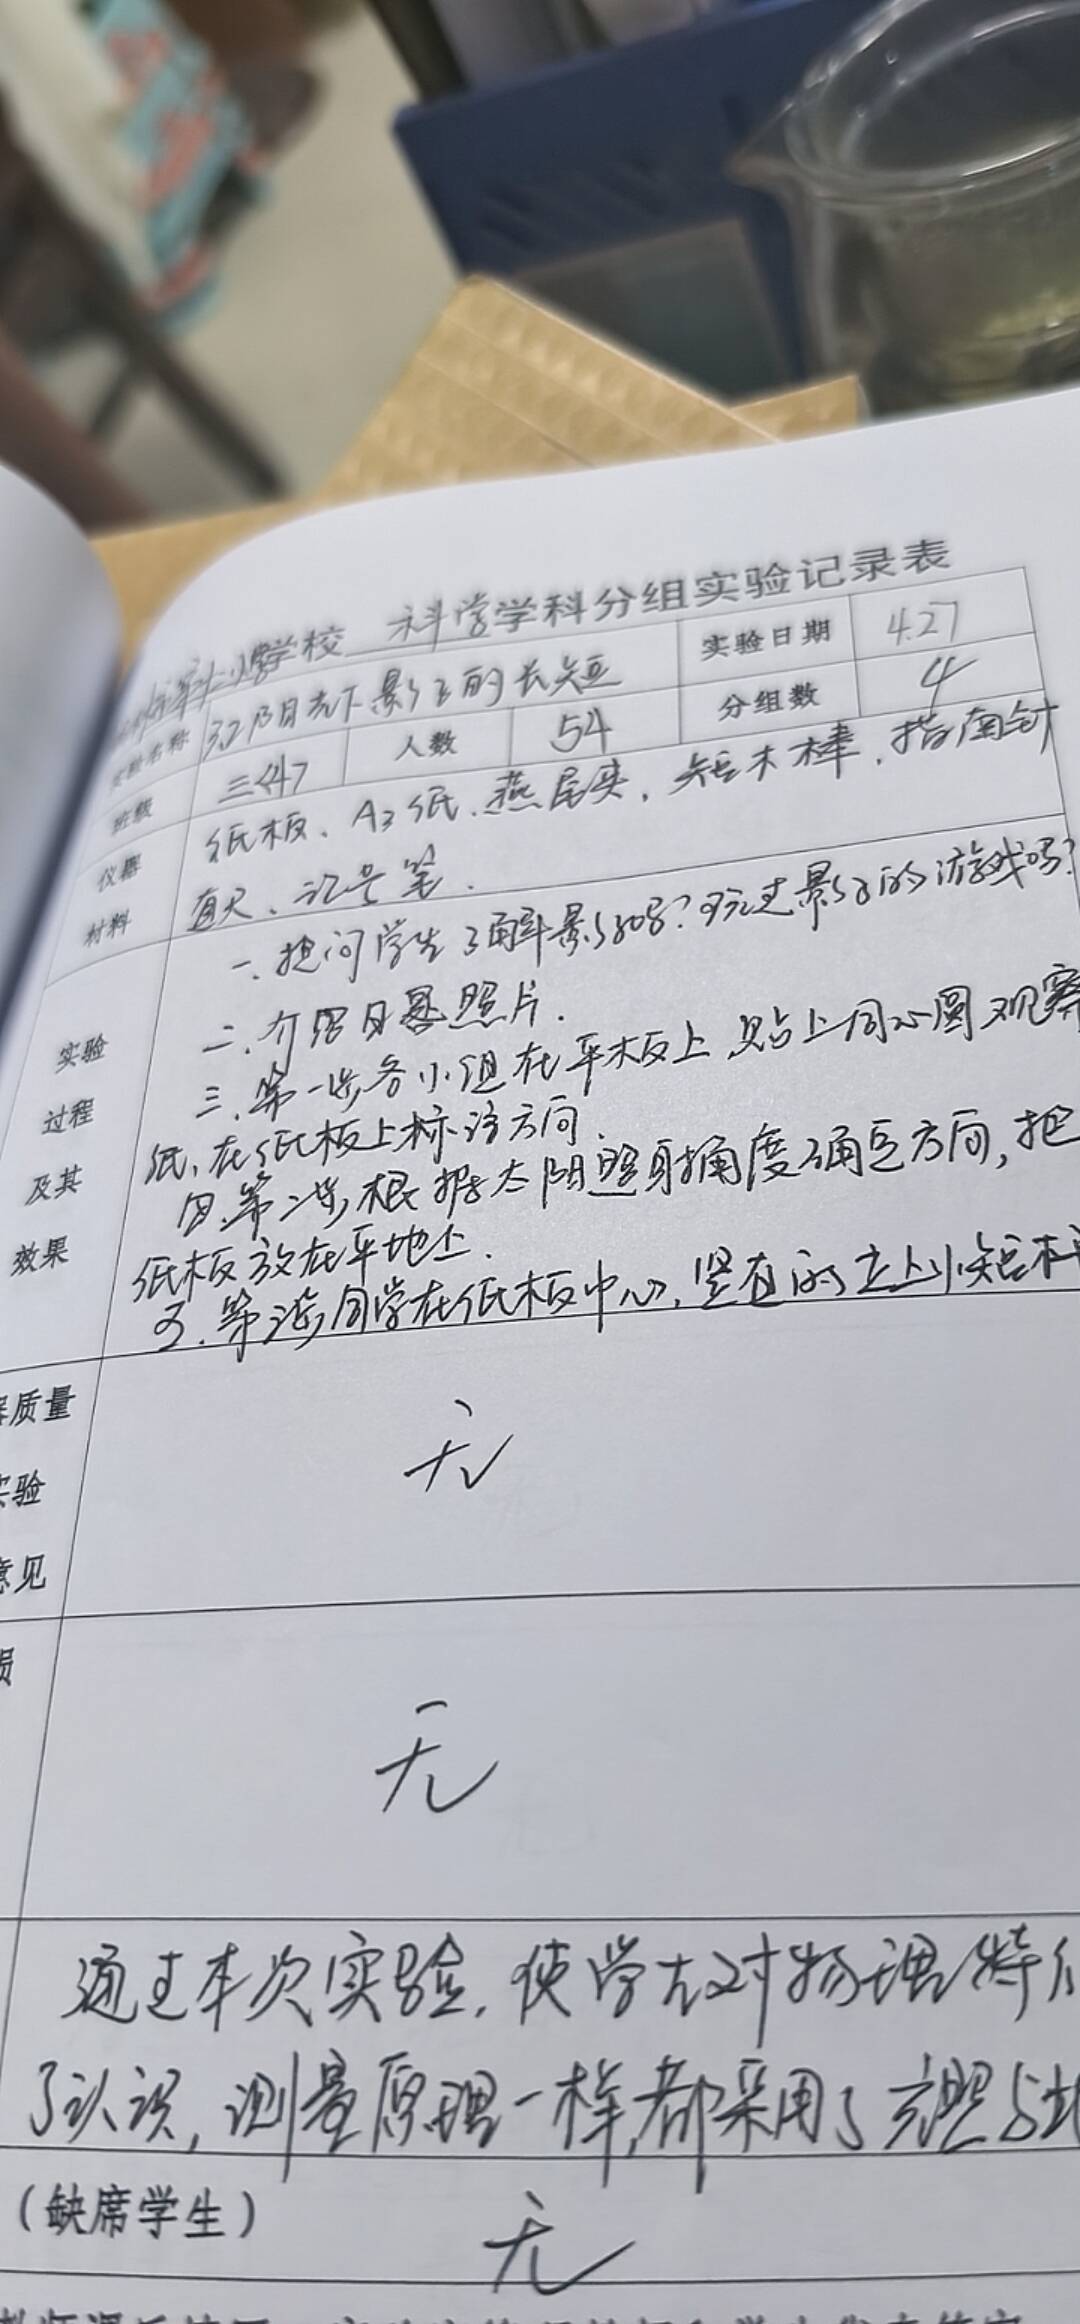 学校 科学学科分组实验记录表
实验名称 阳光下影子的长短 实验日期 4.27
班级 三<4> 人数 54 分组数 4
仪器 纸板、A3纸、燕尾夹、短木棒、指南针
材料 直尺、记号笔.
一、提问学生了解影子吗?玩过影子的游戏吗?
二、介绍日晷照片.
实验 三、第一步各小组在平板上贴上同心圆观察
过程 纸、在纸板上标注方向.
及其 四、第二步根据太阳照射角度确定方向,把
效果 纸板放在平地上.
五、第三步同学在纸板中心,竖直的立上小短
质量
验 无
意见
损
无
通过本次实验,使学生对物理特
了认识,测量原理一样,都采用了光照与
(缺席学生) 无